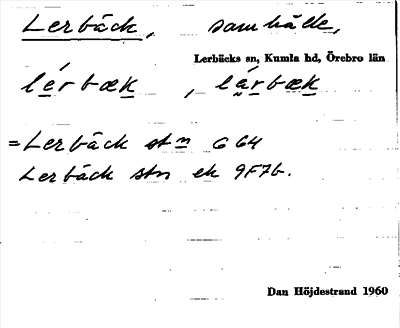 Lerbäck, samhälle,
Lerbäcks sn, Kumla hd, Örebro län
lérbæk, lárbæk
=Lerbäck stn G 64
Lerbäck stn ek 9F7b.
Dan Höjdestrand 1960